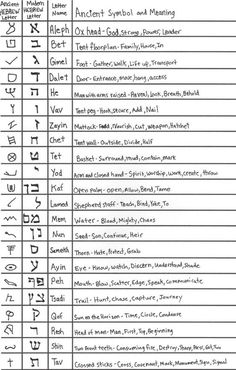 Ancient HEBREW Letter Modern HEBREW Letter Letter Name Ancient Symbol and Meaning
א Aleph Ox head - God, Strong, Power, Leader
ב Bet Tent floorplan - Family, House, In
ג Gimel Foot - Gather, Walk, Lift up, Transport
ד Dalet Door - Entrance, move, hang, access
ה He Man with arms raised - Reveal, Look, Breath, Behold
ו Vav Tent peg - Hook, Secure, Add, Nail
ז Zayin Mattock - Food, Nourish, Cut, Weapon, Hatchet
ח Chet Tent wall - Outside, Divide, Half
ט Tet Basket - Surround, mud, contain, mark
י Yod Arm and closed hand - Spirit, Worship, work, create, throw
כ Kaf Open palm - open, Allow, Bend, Tame
ל Lamed Shepherd staff - Teach, Bind, Yoke, To
מ Mem Water - Blood, Mighty, Chaos
נ Nun Seed - Son, Continue, Heir
ס Samekh Thorn - Hate, Protect, Grab
ע Ayin Eye - Know, Watch, Discern, Understand, Shade
פ Peh Mouth - Blow, Scatter, Edge, Speak, Communicate
צ Tsadi Trail - Hunt, Chase, Capture, Journey
ק Qof Sun on the Horizon - Time, Circle, Condense
ר Resh Head of man - Man, First, Top, Beginning
ש Shin Two front teeth - Consuming fire, Destroy, Sharp, Press, Eat, Two
ת Tav Crossed sticks - Cross, Covenant, Mark, Monument, Sign, Signal